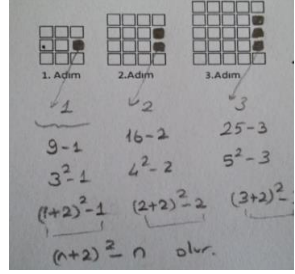 1. Adım 2.Adım 3.Adım
1 2 3
9-1 16-2 25-3
3²-1 4²-2 5²-3
(1+2)²-1 (2+2)²-2 (3+2)²-
(n+2)²-n olur.